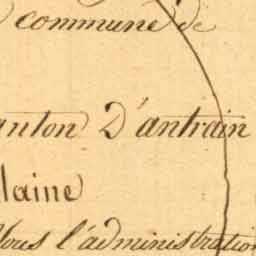 commune de
anton D'antrain
laine
l'administration